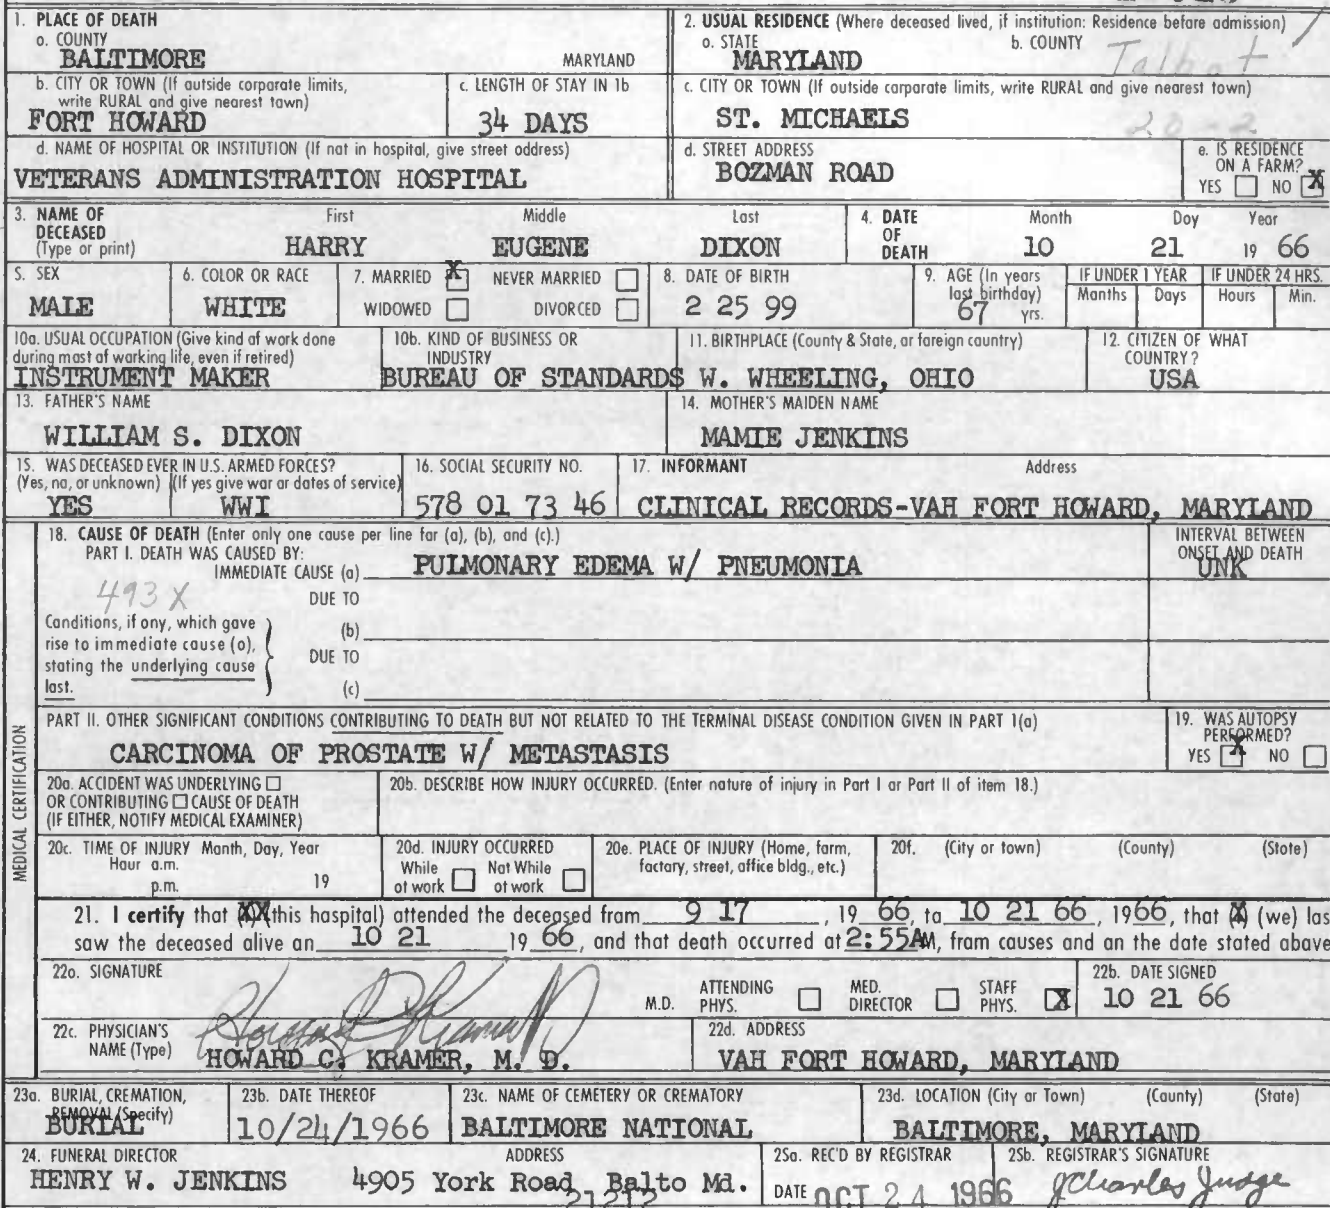 1. PLACE OF DEATH
a. COUNTY
BALTIMORE MARYLAND
2. USUAL RESIDENCE (Where deceased lived, if institution: Residence before admission)
a. STATE b. COUNTY
MARYLAND Talbot
b. CITY OR TOWN (If outside corporate limits, write RURAL and give nearest town)
FORT HOWARD
c. LENGTH OF STAY IN 1b
34 DAYS
c. CITY OR TOWN (If outside corporate limits, write RURAL and give nearest town)
ST. MICHAELS
20-2
d. NAME OF HOSPITAL OR INSTITUTION (If not in hospital, give street address)
VETERANS ADMINISTRATION HOSPITAL
d. STREET ADDRESS
BOZMAN ROAD
e. IS RESIDENCE ON A FARM?
YES NO X
3. NAME OF DECEASED (Type or print)
First Middle Last
HARRY EUGENE DIXON
4. DATE OF DEATH
Month Day Year
10 21 19 66
5. SEX
MALE
6. COLOR OR RACE
WHITE
7. MARRIED X NEVER MARRIED
WIDOWED DIVORCED
8. DATE OF BIRTH
2 25 99
9. AGE (In years last birthday)
67 yrs.
IF UNDER 1 YEAR
Months Days
IF UNDER 24 HRS.
Hours Min.
10a. USUAL OCCUPATION (Give kind of work done during most of working life, even if retired)
INSTRUMENT MAKER
10b. KIND OF BUSINESS OR INDUSTRY
BUREAU OF STANDARDS
11. BIRTHPLACE (County & State, or foreign country)
W. WHEELING, OHIO
12. CITIZEN OF WHAT COUNTRY?
USA
13. FATHER'S NAME
WILLIAM S. DIXON
14. MOTHER'S MAIDEN NAME
MAMIE JENKINS
15. WAS DECEASED EVER IN U.S. ARMED FORCES?
(Yes, no, or unknown) (If yes give war or dates of service)
YES WWI
16. SOCIAL SECURITY NO.
578 01 73 46
17. INFORMANT Address
CLINICAL RECORDS-VAH FORT HOWARD, MARYLAND
MEDICAL CERTIFICATION
18. CAUSE OF DEATH (Enter only one cause per line for (a), (b), and (c).)
PART I. DEATH WAS CAUSED BY:
IMMEDIATE CAUSE (a) PULMONARY EDEMA W/ PNEUMONIA
INTERVAL BETWEEN ONSET AND DEATH
UNK
493X
DUE TO
Conditions, if any, which gave rise to immediate cause (a), stating the underlying cause last.
(b)
DUE TO
(c)
PART II. OTHER SIGNIFICANT CONDITIONS CONTRIBUTING TO DEATH BUT NOT RELATED TO THE TERMINAL DISEASE CONDITION GIVEN IN PART 1(a)
CARCINOMA OF PROSTATE W/ METASTASIS
19. WAS AUTOPSY PERFORMED?
YES X NO
20a. ACCIDENT WAS UNDERLYING
OR CONTRIBUTING CAUSE OF DEATH
(IF EITHER, NOTIFY MEDICAL EXAMINER)
20b. DESCRIBE HOW INJURY OCCURRED. (Enter nature of injury in Part I or Part II of item 18.)
20c. TIME OF INJURY Month, Day, Year
Hour a.m.
p.m. 19
20d. INJURY OCCURRED
While at work Not While at work
20e. PLACE OF INJURY (Home, farm, factory, street, office bldg., etc.)
20f. (City or town) (County) (State)
21. I certify that XX(this hospital) attended the deceased from 9 17, 19 66, to 10 21 66, 1966, that (X) (we) las
saw the deceased alive on 10 21 19 66, and that death occurred at 2:55AM, from causes and on the date stated above
22a. SIGNATURE
Howard C. Kramer MD
M.D. ATTENDING PHYS. MED. DIRECTOR STAFF PHYS. X
22b. DATE SIGNED
10 21 66
22c. PHYSICIAN'S NAME (Type)
HOWARD C. KRAMER, M. D.
22d. ADDRESS
VAH FORT HOWARD, MARYLAND
23a. BURIAL, CREMATION, REMOVAL (Specify)
BURIAL
23b. DATE THEREOF
10/24/1966
23c. NAME OF CEMETERY OR CREMATORY
BALTIMORE NATIONAL
23d. LOCATION (City or Town) (County) (State)
BALTIMORE, MARYLAND
24. FUNERAL DIRECTOR ADDRESS
HENRY W. JENKINS 4905 York Road, Balto Md.
21212
25a. REC'D BY REGISTRAR
DATE OCT 24 1966
25b. REGISTRAR'S SIGNATURE
J Charles Judge